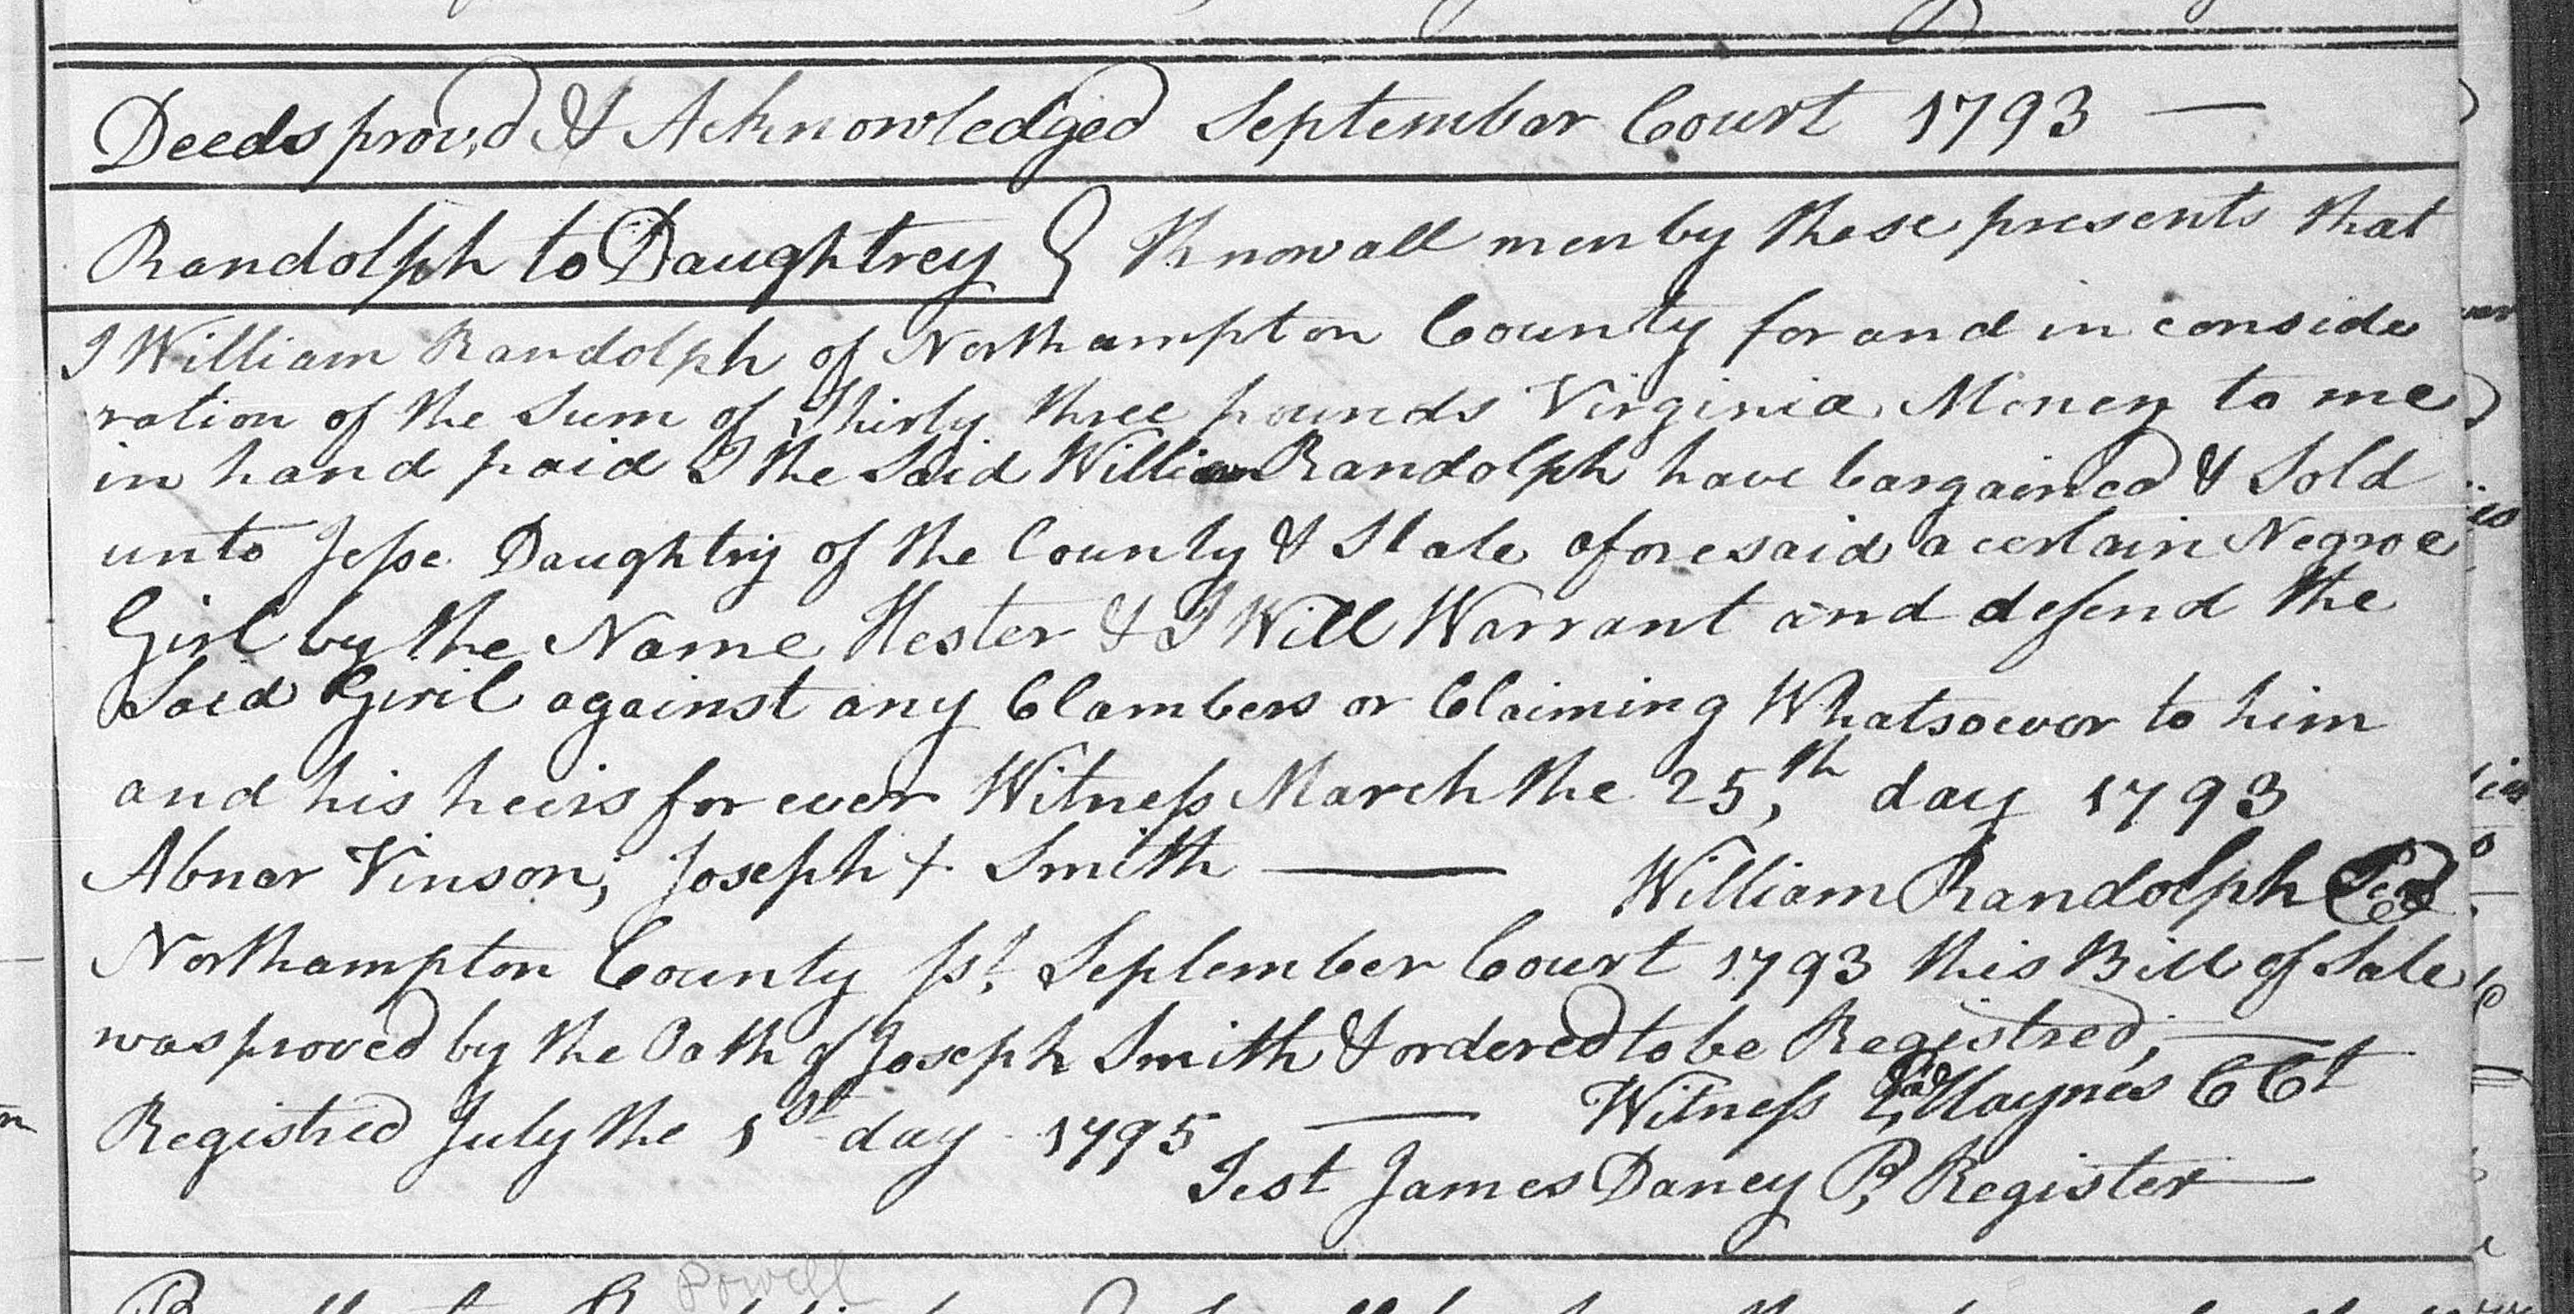 Deeds prov,d & Acknowledged September Court 1793 —
Randolph to Daughtrey } Know all men by these presents that
I William Randolph of Northampton County for and in conside
ration of the Sum of Thirty three pounds Virginia Money to me
in hand paid I the Said William Randolph have bargained & Sold
unto Jesse Daughtry of the County & State aforesaid a certain Negroe
Girl by the Name Hester & I Will Warrant and defend the
Said Giril against any Clambers or Claiming Whatsoever to him
and his heirs for ever Witness March the 25,th day 1793
Abner Vinson; Joseph + Smith — William Randolph Seal
Northampton County sst. September Court 1793 this Bill of Sale
was proved by the Oath of Joseph Smith & ordered to be Registred, —
Registred July the 1st day 1795 — Witness Haynes CCt
Test James Daney P, Register —
Powell